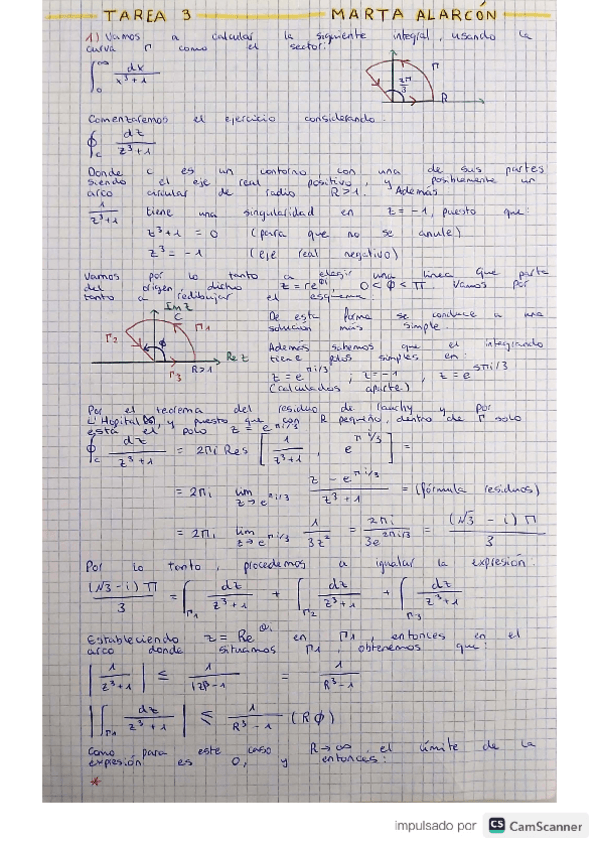 TAREA 3 MARTA ALARCÓN
1) Vamos a calcular la siguiente integral, usando la
curva Γ como el sector:
∫₀^∞ dx/(x³+1)
Γ
2π/3
R
Comentaremos el ejercicio considerando:
∮_C dz/(z³+1)
Donde C es un contorno con una de sus partes
siendo el eje real positivo, y posiblemente un
arco circular de radio R>1. Además
1/(z³+1) tiene una singularidad en z=-1, puesto que:
z³+1 = 0 (para que no se anule)
z³ = -1 (eje real negativo)
Vamos por lo tanto a elegir una línea que parte
del origen, dicho z = re^φi 0 < φ < π. Vamos por
tanto a redibujar el esquema:
Im z
C
Γ₁
Γ₂
φ
Γ₃
R>1
Re z
De esta forma se conduce a una
solución más simple.
Además sabemos que el integrando
tiene polos simples en:
z = e^πi/3 ; z = -1 , z = e^5πi/3
(calculados aparte)
Por el teorema del residuo de Cauchy y por
L'Hôpital, y puesto que con R pequeño, dentro de Γ solo
está el polo z = e^πi/3
∮_C dz/(z³+1) = 2πi Res [1/(z³+1), e^πi/3] =
= 2πi lim z→e^πi/3 (z - e^πi/3)/(z³+1) = (fórmula residuos)
= 2πi lim z→e^πi/3 1/3z² = 2πi/3e^2πi/3 = (√3 - i)π/3
Por lo tanto, procedemos a igualar la expresión:
(√3-i)π/3 = ∫_Γ₁ dz/(z³+1) + ∫_Γ₂ dz/(z³+1) + ∫_Γ₃ dz/(z³+1)
Estableciendo z = Re^θi en Γ₁, entonces en el
arco donde situamos Γ₁, obtenemos que:
|1/(z³+1)| ≤ 1/(|z|³-1) = 1/(R³-1)
|∫_Γ₁ dz/(z³+1)| ≤ 1/(R³-1) (Rφ)
Como para este caso R→∞ el límite de la
expresión es 0, y entonces:
*
impulsado por CS CamScanner